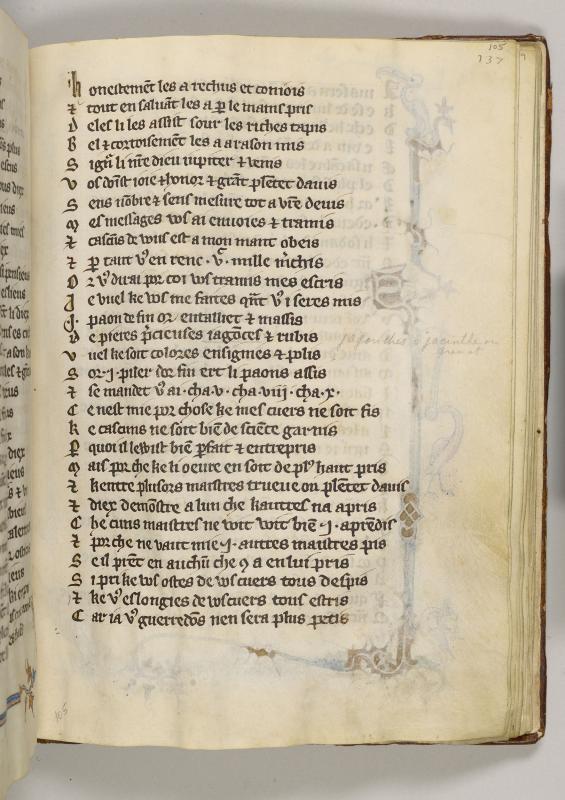 105
137
honestement les a rechius et conjois
⁊ tout en saluāt les a ꝑ le mains pris
Deles li les assist sour les riches tapis
Bel ⁊ cortoisement les a a raison mis
Signr̄ li nr̄e dieu iupiter ⁊ venis
Vos doīst ioie ⁊ honor ⁊ grāt plētet damis
Sens nōbre ⁊ sens mesure tot a vr̄e deuis
Mes messages vos ai enuoies ⁊ tramis
⁊ cascūs de vous est a mon mant obeis
⁊ ꝑ tant vꝰ en renc .vͨ. mille m̄chis
Or vꝰ dirai por coi vos tramis mes escris
Je vuel ke vos me faites qn̄t vꝰ i seres mis
.J. paon de fin or entalliet ⁊ massis
De pieres p̄cieuses iagonces ⁊ rubis
Vuel ke soit colores ensignies ⁊ polis
Sor .j. piler dor fin ert li paons assis
⁊ se mandet vꝰ ai .cha.v. cha.viij. cha.x.
Ce nest mie por chose ke mes cuers ne soit fis
Ke cascuns ne soit biē de sciēce garnis
Par quoi il le puist biē ꝑfait ⁊ entrepris
Mais por che ke li oeure en soit de plꝰ haut pris
⁊ kentre plusors maistres trueue on plētet dauis
⁊ diex demōstre a lun che kautres na apris
Che cuns maistres ne voit voit biē .j. aprēdis
⁊ por che ne vaut mie .j. autres maistres pis
Se il prēt en auchū che 9 a en lui pris
Si pri ke vos ostes de vos cuers tous despis
⁊ ke vꝰ eslongies de vos cuers tous estris
Car ia vꝰ guerredōs nen sera plus petis
jagonches = jacinthe ou
grenat
105